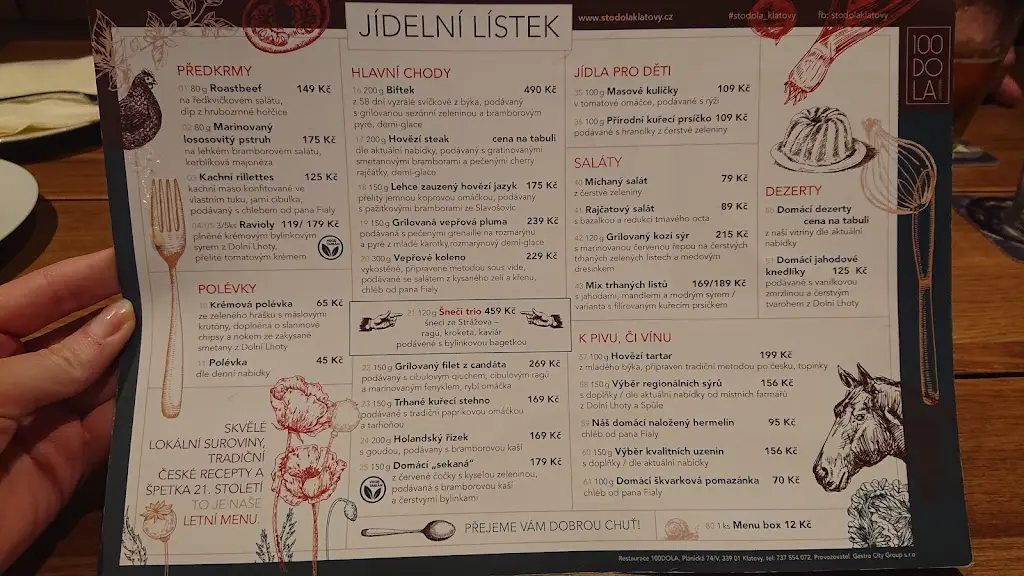 JÍDELNÍ LÍSTEK
www.stodolaklatovy.cz
#stodola_klatovy
fb: stodolaklatovy
100
DO
LA
PŘEDKRMY
01 80 g Roastbeef 149 Kč
na ředkvičkovém salátu,
dip z hrubozrnné hořčice
02 80 g Marinovaný
lososovitý pstruh 175 Kč
na lehkém bramborovém salátu,
kerblíková majonéza
03 Kachní rillettes 125 Kč
kachní maso konfitované ve
vlastním tuku, jarní cibulka,
podávaný s chlebem od pana Fialy
3/5ks Ravioly 119/ 179 Kč
plněné krémovým bylinkovým
sýrem z Dolní Lhoty,
přelité tomatovým krémem
POLÉVKY
10 Krémová polévka 65 Kč
ze zeleného hrášku s máslovými
krutóny, doplněná o slaninové
chipsy a nokem ze zakysané
smetany z Dolní Lhoty
11 Polévka 45 Kč
dle denní nabídky
SKVĚLÉ
LOKÁLNÍ SUROVINY,
TRADIČNÍ
ČESKÉ RECEPTY A
ŠPETKA 21. STOLETÍ
TO JE NAŠE
LETNÍ MENU.
HLAVNÍ CHODY
16 200 g Biftek 490 Kč
z 58 dní vyzrálé svíčkové z býka, podávaný
s grilovanou sezónní zeleninou a bramborovým
pyré, demi-glace
17 200 g Hovězí steak cena na tabuli
dle aktuální nabídky, podávaný s gratinovanými
smetanovými bramborami a pečenými cherry
rajčátky, demi-glace
18 150 g Lehce zauzený hovězí jazyk 175 Kč
přelitý jemnou koprovou omáčkou, podávaný
s pažitkovými bramborami ze Slavošovic
19 150 g Grilovaná vepřová pluma 239 Kč
podávaná s pečenými grenaille na rozmarýnu
a pyré z mladé karotky,rozmarýnový demi-glace
20 300 g Vepřové koleno 229 Kč
vykostěné, připravené metodou sous vide,
podávané se salátem z kysaného zelí a křenu,
chléb od pana Fialy
21 120 g Šnečí trio 459 Kč
šneci ze Strážova –
ragú, kroketa, kaviár
podávané s bylinkovou bagetkou
22 150 g Grilovaný filet z candáta 269 Kč
podávaný s cibulovým qiuchem, cibulovým ragú
a marinovaným fenyklem, rybí omáčka
23 150 g Trhané kuřecí stehno 169 Kč
podávané s tradiční paprikovou omáčkou
a tarhoňou
24 200 g Holandský řízek 169 Kč
s goudou, podávaný s bramborovou kaší
25 150 g Domácí „sekaná“ 179 Kč
z červené čočky s kyselou zeleninou,
podávaná s bramborovou kaší
a čerstvými bylinkami
PŘEJEME VÁM DOBROU CHUŤ!
JÍDLA PRO DĚTI
35 100 g Masové kuličky 109 Kč
v tomatové omáčce, podávané s rýží
36 100 g Přírodní kuřecí prsíčko 109 Kč
podávané s hranolky z čerstvé zeleniny
SALÁTY
40 Míchaný salát 79 Kč
z čerstvé zeleniny
41 Rajčatový salát 89 Kč
s bazalkou a redukcí tmavého octa
42 120 g Grilovaný kozí sýr 215 Kč
s marinovanou červenou řepou na čerstvých
trhaných zelených listech a medovým
dresinkem
43 Mix trhaných listů 169/189 Kč
s jahodami, mandlemi a modrým sýrem /
varianta s filírovaným kuřecím prsíčkem
DEZERTY
50 Domácí dezerty
cena na tabuli
z naší vitríny dle aktuální
nabídky
51 Domácí jahodové
knedlíky 125 Kč
podávané s vanilkovou
zmrzlinou a čerstvým
tvarohem z Dolní Lhoty
K PIVU, ČI VÍNU
57 100 g Hovězí tartar 199 Kč
z mladého býka, připraven tradiční metodou po česku, topinky
58 150 g Výběr regionálních sýrů 156 Kč
s doplňky / dle aktuální nabídky od místních farmářů
z Dolní Lhoty a Spůle
59 Náš domácí naložený hermelín 95 Kč
chléb od pana Fialy
60 150 g Výběr kvalitních uzenin 156 Kč
s doplňky / dle aktuální nabídky
61 100 g Domácí škvarková pomazánka 70 Kč
chléb od pana Fialy
80 1 ks Menu box 12 Kč
Restaurace 100DOLA, Plánická 74/V, 339 01 Klatovy, tel: 737 554 072, Provozovatel Gastro City Group s.r.o